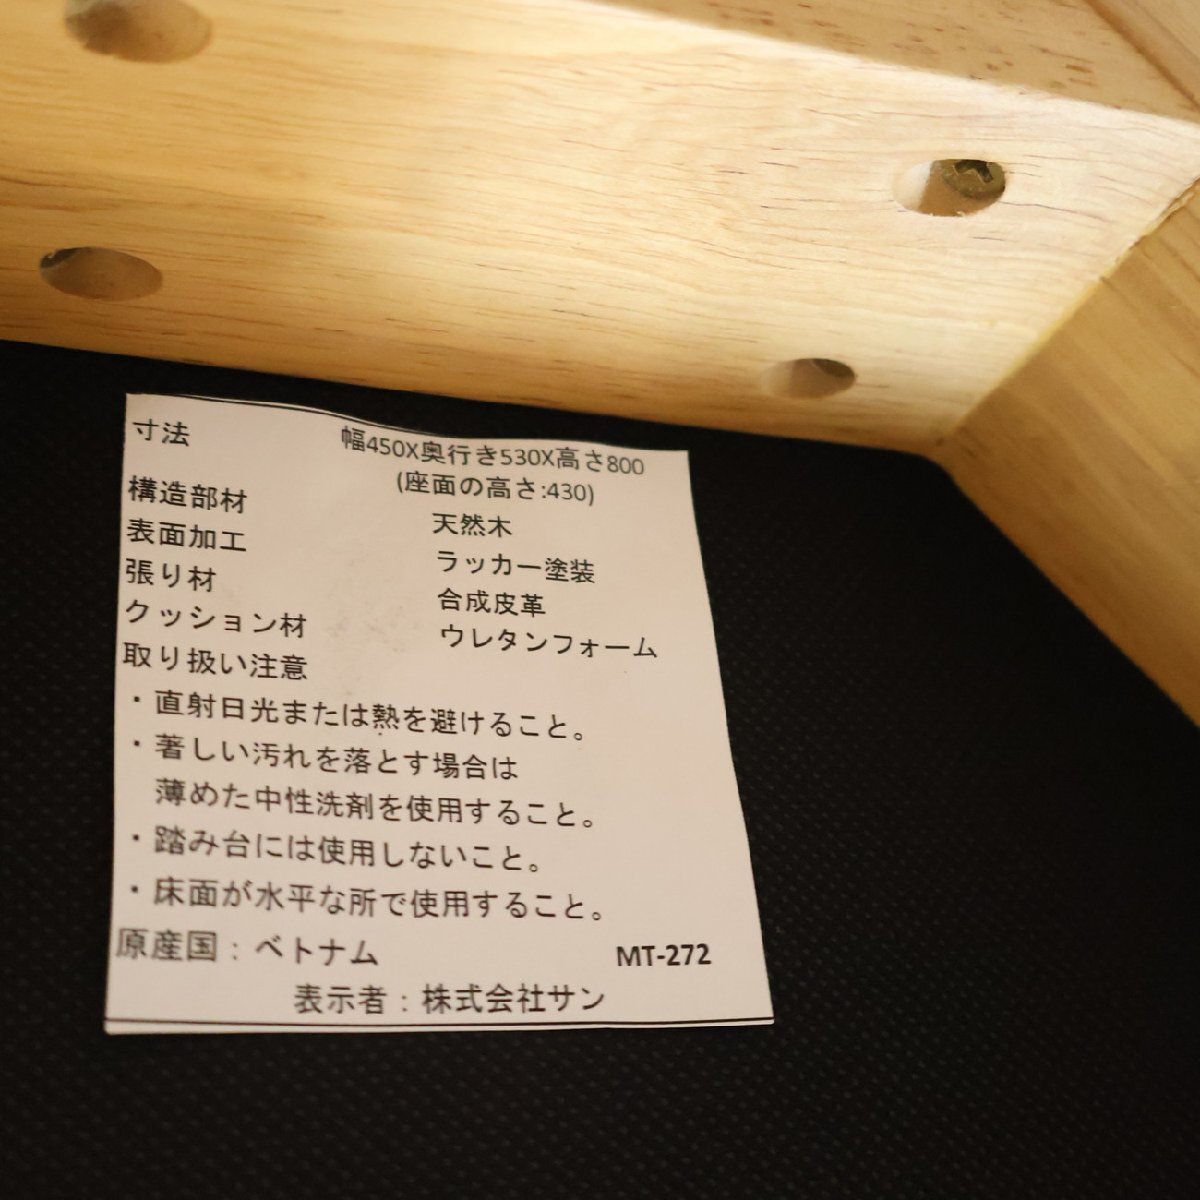 寸法 幅450X奥行き530X高さ800
(座面の高さ:430)
構造部材 天然木
表面加工 ラッカー塗装
張り材 合成皮革
クッション材 ウレタンフォーム
取り扱い注意
・直射日光または熱を避けること。
・著しい汚れを落とす場合は
薄めた中性洗剤を使用すること。
・踏み台には使用しないこと。
・床面が水平な所で使用すること。
原産国：ベトナム MT-272
表示者：株式会社サン